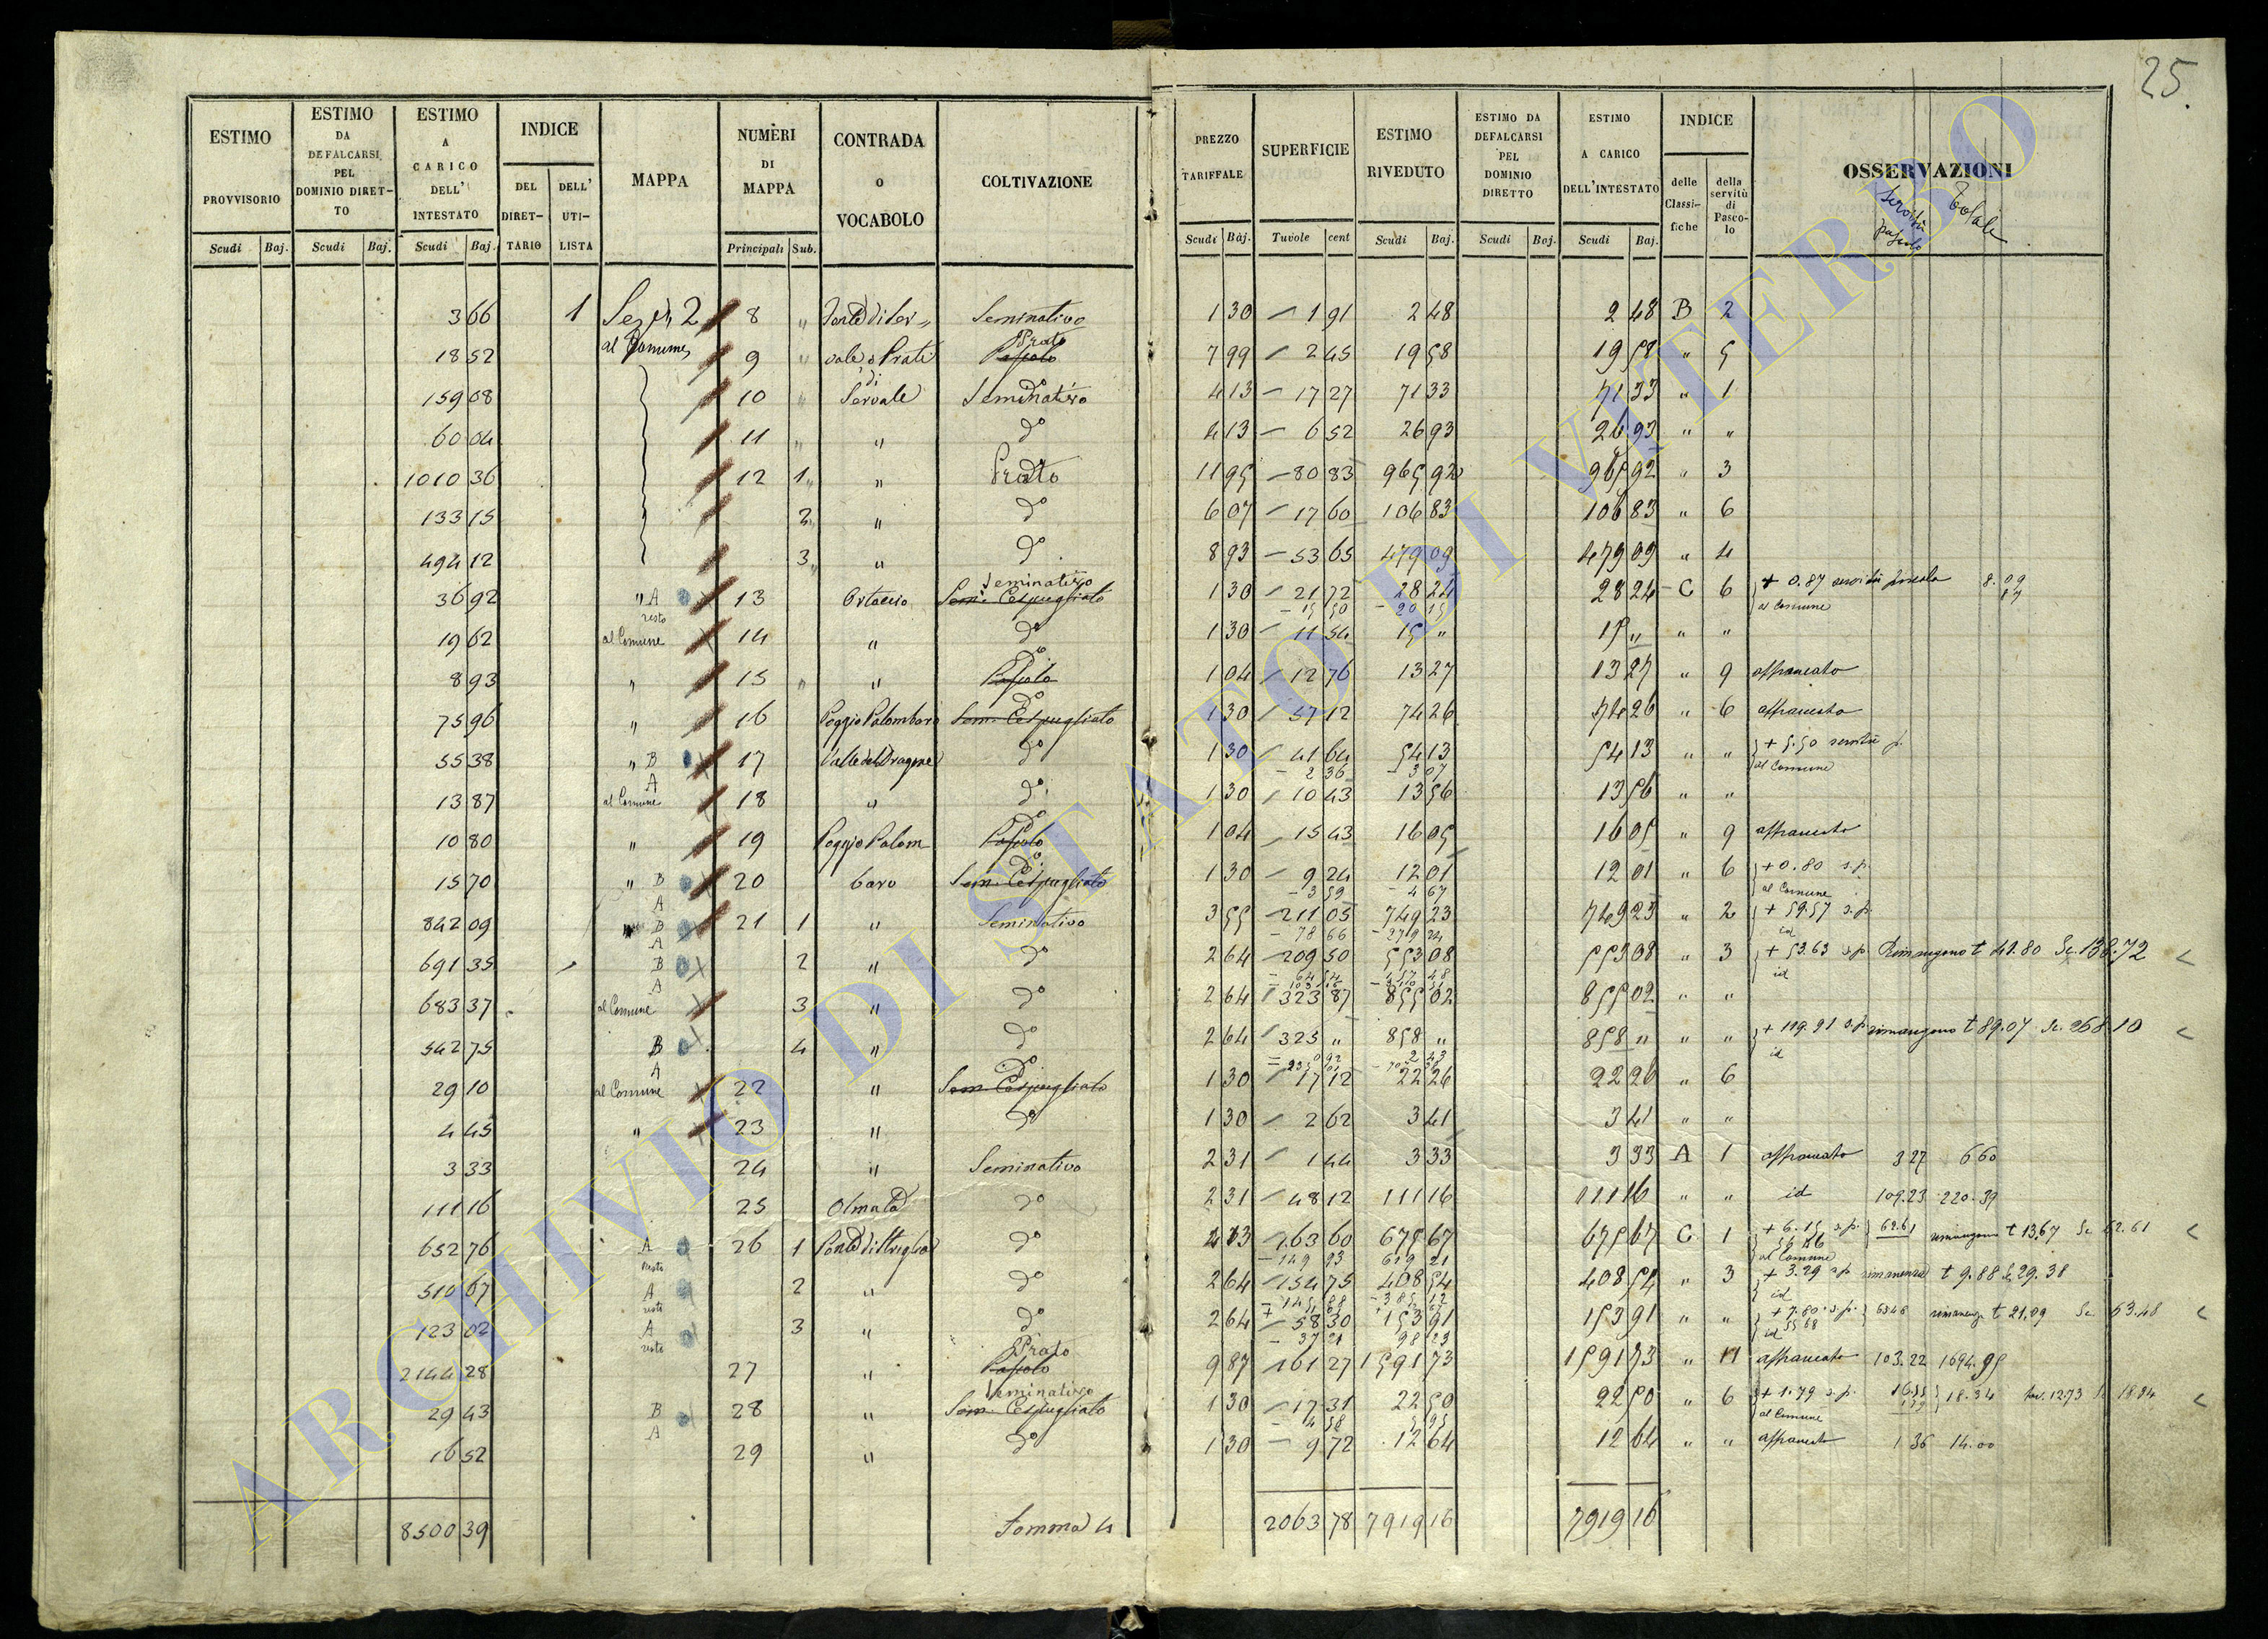 25.
ESTIMO PROVVISORIO Scudi Baj.
ESTIMO DA DEFALCARSI PEL DOMINIO DIRETTO Scudi Baj.
ESTIMO A CARICO DELL' INTESTATO Scudi Baj.
INDICE DEL DIRETTARIO DELL' UTILISTA
MAPPA
NUMERI DI MAPPA Principali Sub.
CONTRADA O VOCABOLO
COLTIVAZIONE
PREZZO TARIFFALE Scudi Baj.
SUPERFICIE Tavole cent
ESTIMO RIVEDUTO Scudi Baj.
ESTIMO DA DEFALCARSI PEL DOMINIO DIRETTO Scudi Baj.
ESTIMO A CARICO DELL'INTESTATO Scudi Baj.
INDICE delle Classifiche della servitù di Pascolo
OSSERVAZIONI
servitù pascolo Totale
3 66 1 2 8 " Seminativo 1 30 1 91 2 48 2 48 B 2
al Comune
Prato
18 52 9 " Pascolo 7 99 2 45 19 58 19 58 " 5
159 08 10 " Servale Seminativo 4 13 17 27 71 33 71 33 " 1
60 04 11 " " do 4 13 6 52 26 93 26 93 " "
1010 36 12 1 " Prato 11 95 80 83 965 92 965 92 " 3
133 15 2 " do 6 07 17 60 106 83 106 83 " 6
494 12 3 " do 8 93 53 65 479 09 479 09 " 4
Seminativo
36 92 " A 13 Ortaccio Sem. Cespugliato 1 30 21 72 28 24 28 24 C 6 + 0.87 servitù pascolo 8.09
resto - 15 50 - 20 15 al Comune
19 62 al Comune 14 " do 1 30 11 54 15 " 15 " " "
do
8 93 " 15 " " Pascolo 1 04 12 76 13 27 13 27 " 9 affrancato
do
75 96 " 16 Poggio Palombaro Sem. Cespugliato 1 30 57 12 74 26 74 26 " 6 affrancato
55 38 " B 17 Valle del Dragone do 1 30 41 64 54 13 54 13 " " + 5.50 servitù p.
A - 2 36 - 3 07 al Comune
13 87 al Comune 18 " do 1 30 10 43 13 56 13 56 " "
do
10 80 " 19 Poggio Palom Pascolo 1 04 15 43 16 05 16 05 " 9 affrancato
do
15 70 " B 20 baro Sem. Cespugliato 1 30 9 24 12 01 12 01 " 6 + 0.80 s.p.
A - 3 59 - 4 67 al Comune
842 09 B 21 1 " Seminativo 3 55 211 05 749 23 749 23 " 2 + 59.57 s.p.
A - 78 66 - 279 24 id
691 35 B 2 " do 2 64 209 50 553 08 553 08 " 3 + 53.63 s.p. Rimangono t 41.80 Sc. 138.72
A id
683 37 al Comune 3 " do 2 64 323 87 855 02 855 02 " "
542 75 B 4 " do 2 64 325 " 858 " 858 " " " + 119.91 s.p. rimangono t 89.07 Sc. 268.10
A id
do
29 10 al Comune 22 " Sem. Cespugliato 1 30 17 12 22 26 22 26 " 6
4 45 " 23 " do 1 30 2 62 3 41 3 41 " "
3 33 24 " Seminativo 2 31 1 44 3 33 3 33 A 1 affrancato 3 27 6 60
111 16 25 Olmata do 2 31 48 12 111 16 111 16 " " id 109.23 220.39
652 76 A 26 1 do 4 13 163 60 675 67 675 67 C 1 + 6.15 s.p. 62.61 rimangono t 13.67 Sc 62.61
resto - 149 93 619 21 al Comune
510 67 A 2 " do 2 64 154 75 408 54 408 54 " 3 + 3.29 s.p. t 9.88 Sc 29.38
resto id
123 02 A 3 " do 2 64 58 30 153 91 153 91 " " + 7.80 s.p. 63 48 t 21.09 Sc. 63.48
resto - 37 21 98 23 id 55 68
Prato
2144 28 27 " Pascolo 9 87 161 27 1591 73 1591 73 " 11 affrancato 103.22 1694.95
Seminativo
29 43 B 28 " Sem. Cespugliato 1 30 17 31 22 50 22 50 " 6 + 1.79 s.p. 16.55 18.34 12.73 Sc 18.34
A - 4 58 5 95 al Comune
16 52 29 " do 1 30 9 72 12 64 12 64 " " affrancato 1 36 14.00
8500 39 Somma 2063 78 7919 16 7919 16
ARCHIVIO DI STATO DI VITERBO